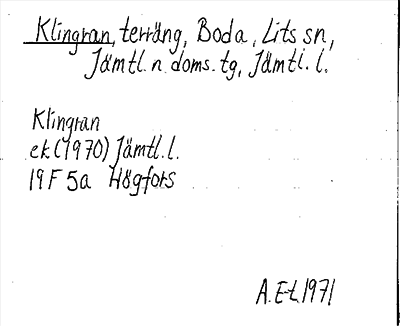 Klingran, terräng, Boda, Lits sn,
Jämtl. n. doms. tg, Jämtl. l.
Klingran
ek (1970) Jämtl. l.
19 F 5a Högfors
A. E-t. 1971